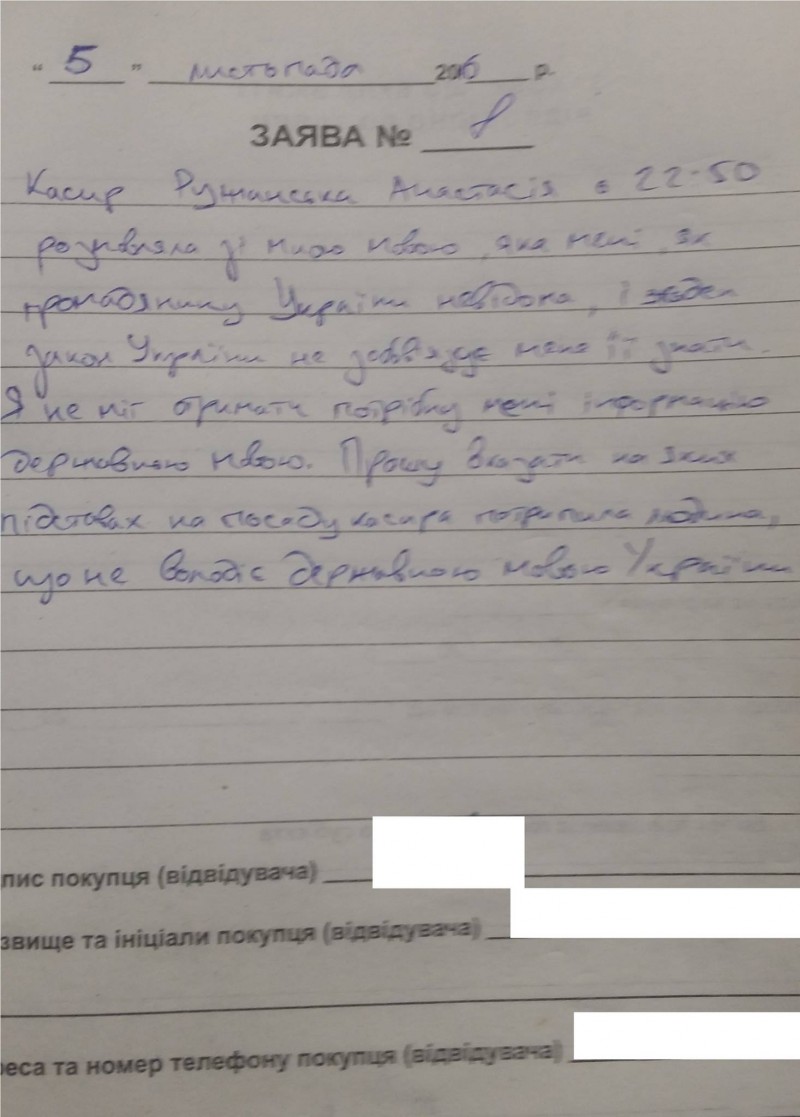 " 5 " листопада 2016 р.
ЗАЯВА № 8
Касир Ружанська Анастасія о 22-50
розмовляла зі мною мовою, яка мені, як
громадянину України невідома, і жоден
закон України не зобов'язує мене її знати.
Я не міг отримати потрібну мені інформацію
державною мовою. Прошу вказати на яких
підставах на посаду касира потрапила людина,
що не володіє державною мовою України
пис покупця (відвідувача)
звище та ініціали покупця (відвідувача)
реса та номер телефону покупця (відвідувача)